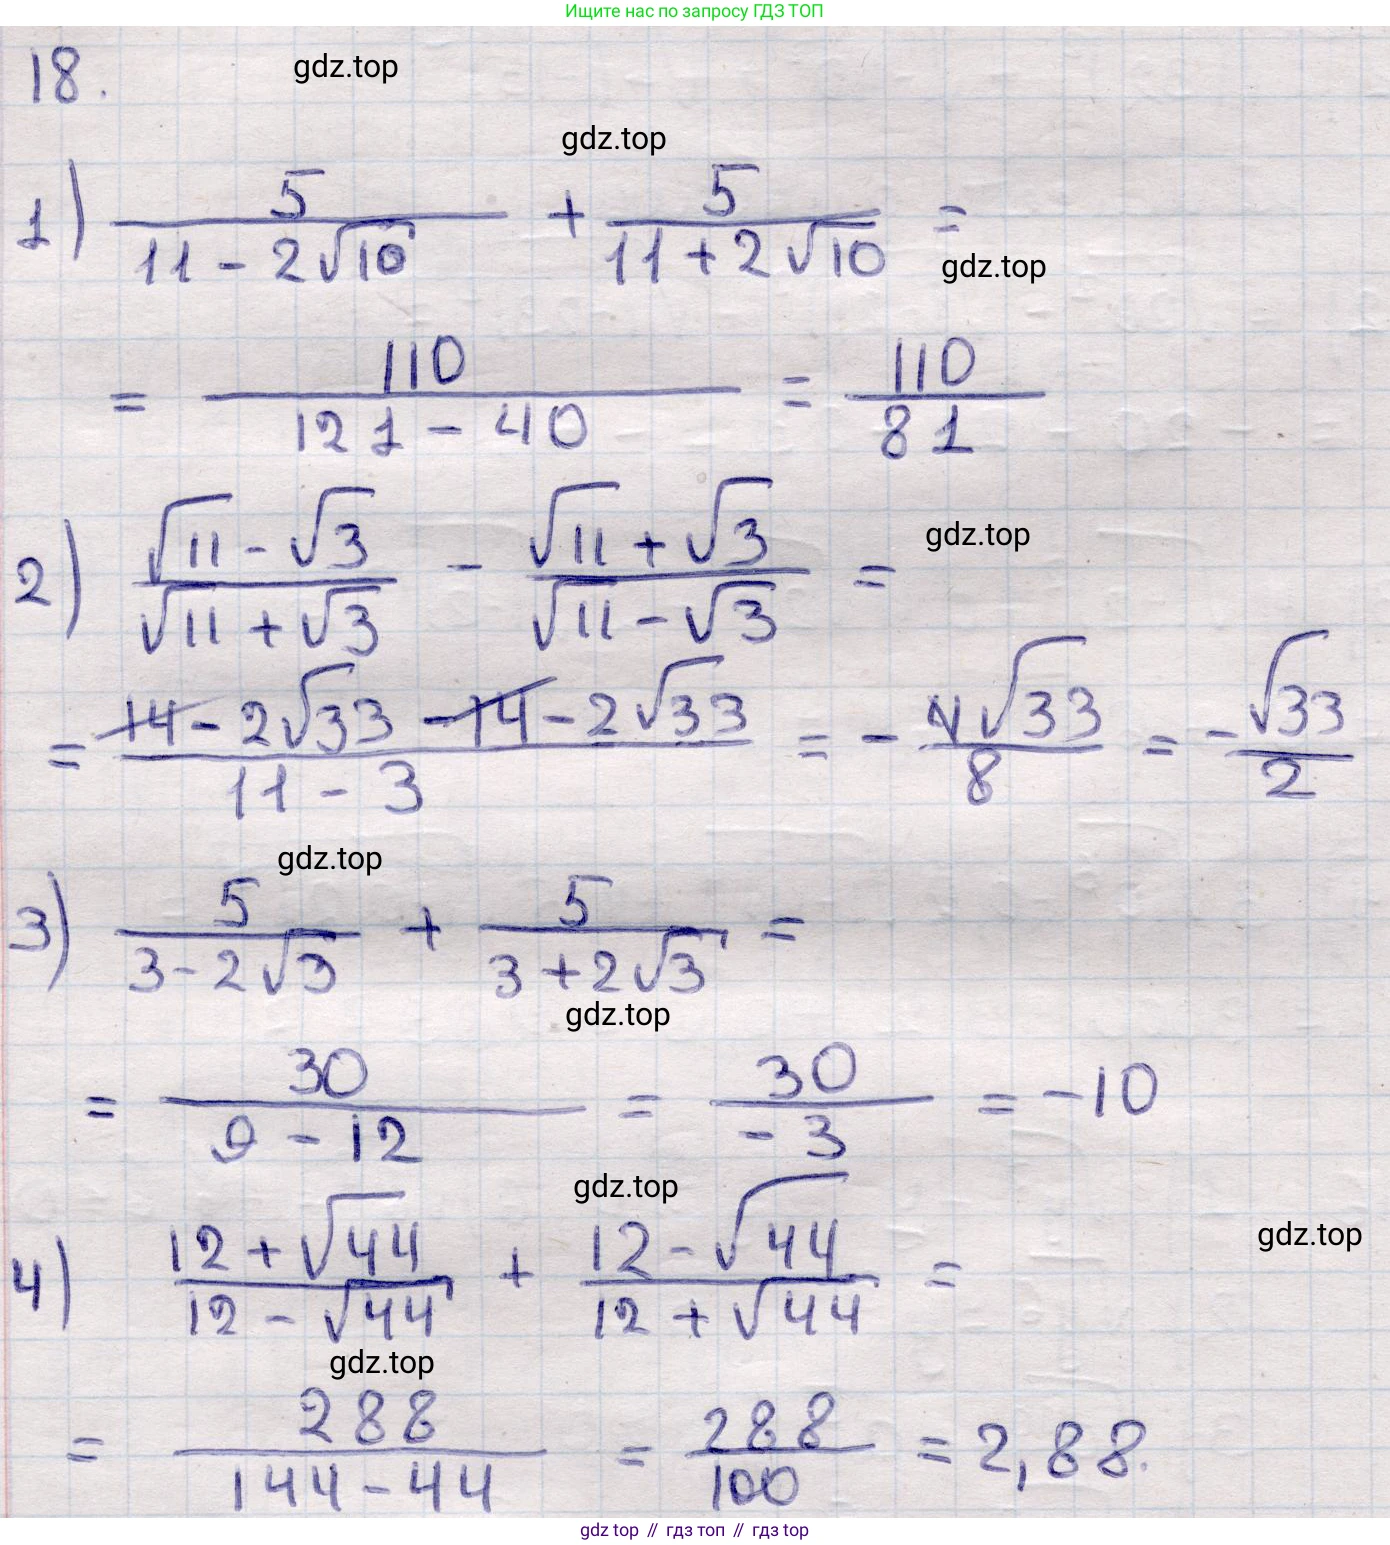 Ищите нас по запросу ГДЗ ТОП
18.
gdz.top
gdz.top
1) 5/(11 - 2√10) + 5/(11 + 2√10) =
gdz.top
= 110/(121 - 40) = 110/81
2) (√11 - √3)/(√11 + √3) - (√11 + √3)/(√11 - √3) =
gdz.top
= (14 - 2√33 - 14 - 2√33)/(11 - 3) = - 4√33/8 = - √33/2
gdz.top
3) 5/(3 - 2√3) + 5/(3 + 2√3) =
gdz.top
= 30/(9 - 12) = 30/(-3) = -10
gdz.top
4) (12 + √44)/(12 - √44) + (12 - √44)/(12 + √44) =
gdz.top
gdz.top
= 288/(144 - 44) = 288/100 = 2,88.
gdz top // гдз топ // гдз top